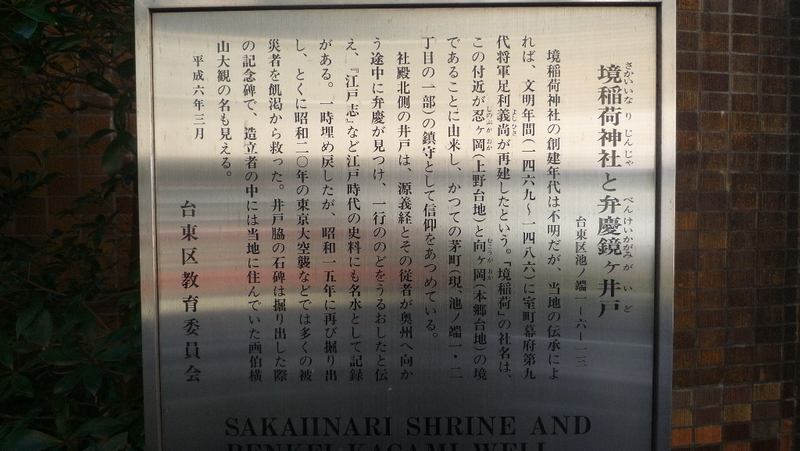 境稲荷神社と弁慶鏡ヶ井戸
さかいいなりじんじゃ べんけいかがみがいど
台東区池ノ端一―六―一三
境稲荷神社の創建年代は不明だが、当地の伝承によ
れば、文明年間(一四六九〜一四八六)に室町幕府第九
代将軍足利義尚が再建したという。『境稲荷』の社名は、
よしひさ
この付近が忍ヶ岡(上野台地)と向ヶ岡(本郷台地)の境
しのぶがおか むこうがおか
であることに由来し、かつての茅町(現、池ノ端一・二
丁目の一部)の鎮守として信仰をあつめている。
社殿北側の井戸は、源義経とその従者が奥州へ向か
う途中に弁慶が見つけ、一行ののどをうるおしたと伝
え、『江戸志』など江戸時代の史料にも名水として記録
がある。一時埋め戻したが、昭和一五年に再び掘り出
し、とくに昭和二〇年の東京大空襲などでは多くの被
災者を飢渇から救った。井戸脇の石碑は掘り出した際
の記念碑で、造立者の中には当地に住んでいた画伯横
山大観の名も見える。
平成六年三月
台東区教育委員会
SAKAIINARI SHRINE AND
BENKEI KAGAMI WELL